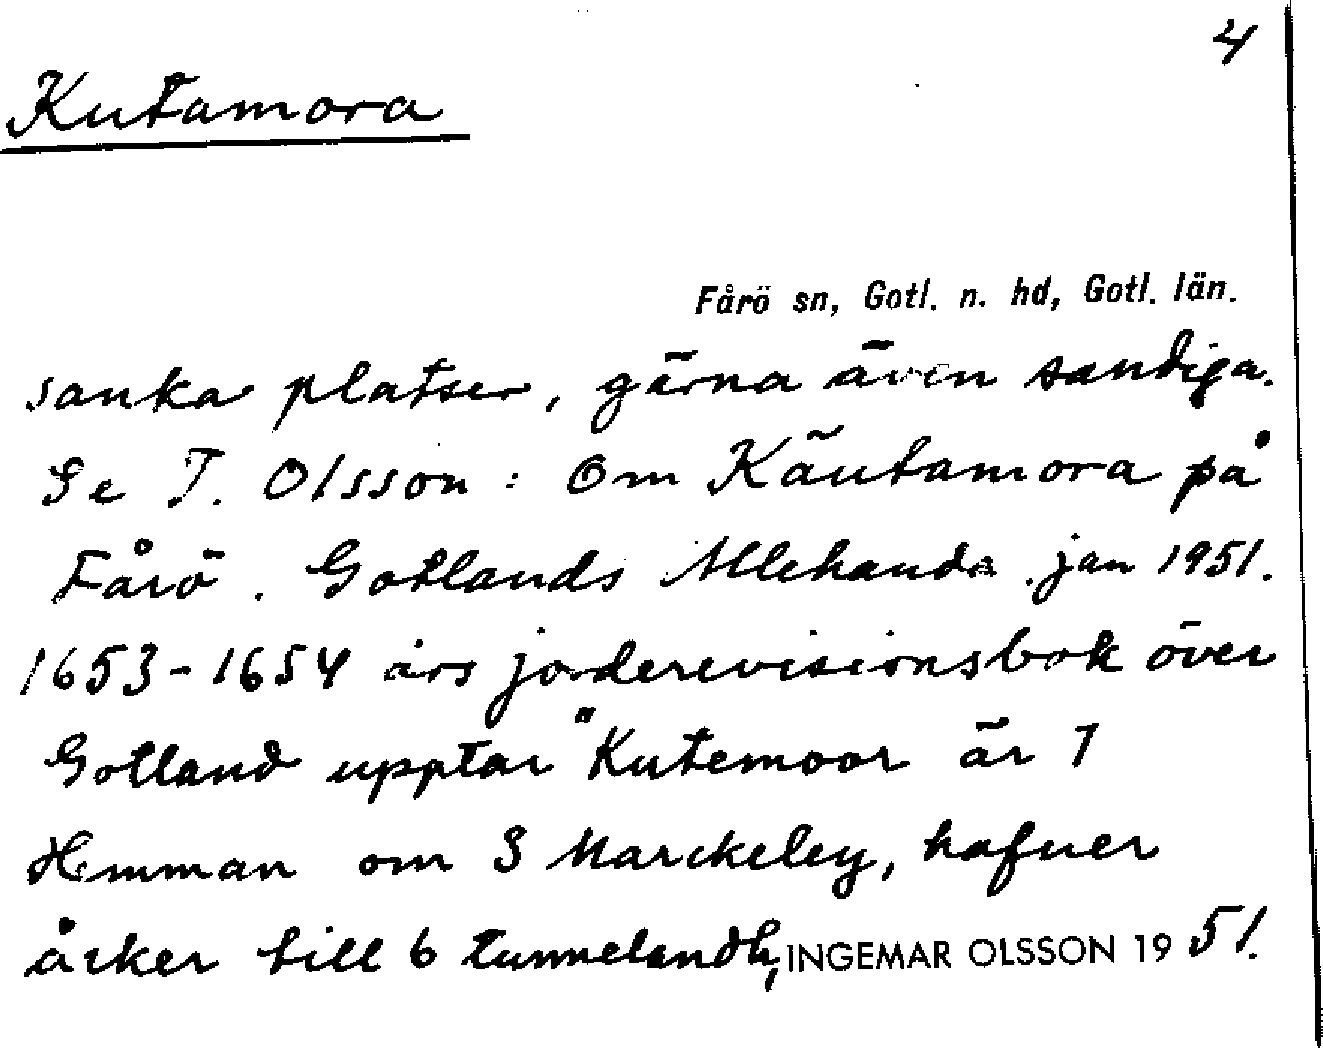 4
Kutamora
Fårö sn, Gotl. n. hd, Gotl. län.
sanka platser, gärna även sandiga.
Se I. Olsson: Om Käutamora på
Fårö. Gotlands Allehanda jan 1951.
1653-1654 års jorderevisionsbok över
Gotland upptar "Kutemoor är 1
Hemman om 3 Marckeley, hafuer
åcker till 6 tunnelandh,
INGEMAR OLSSON 1951.